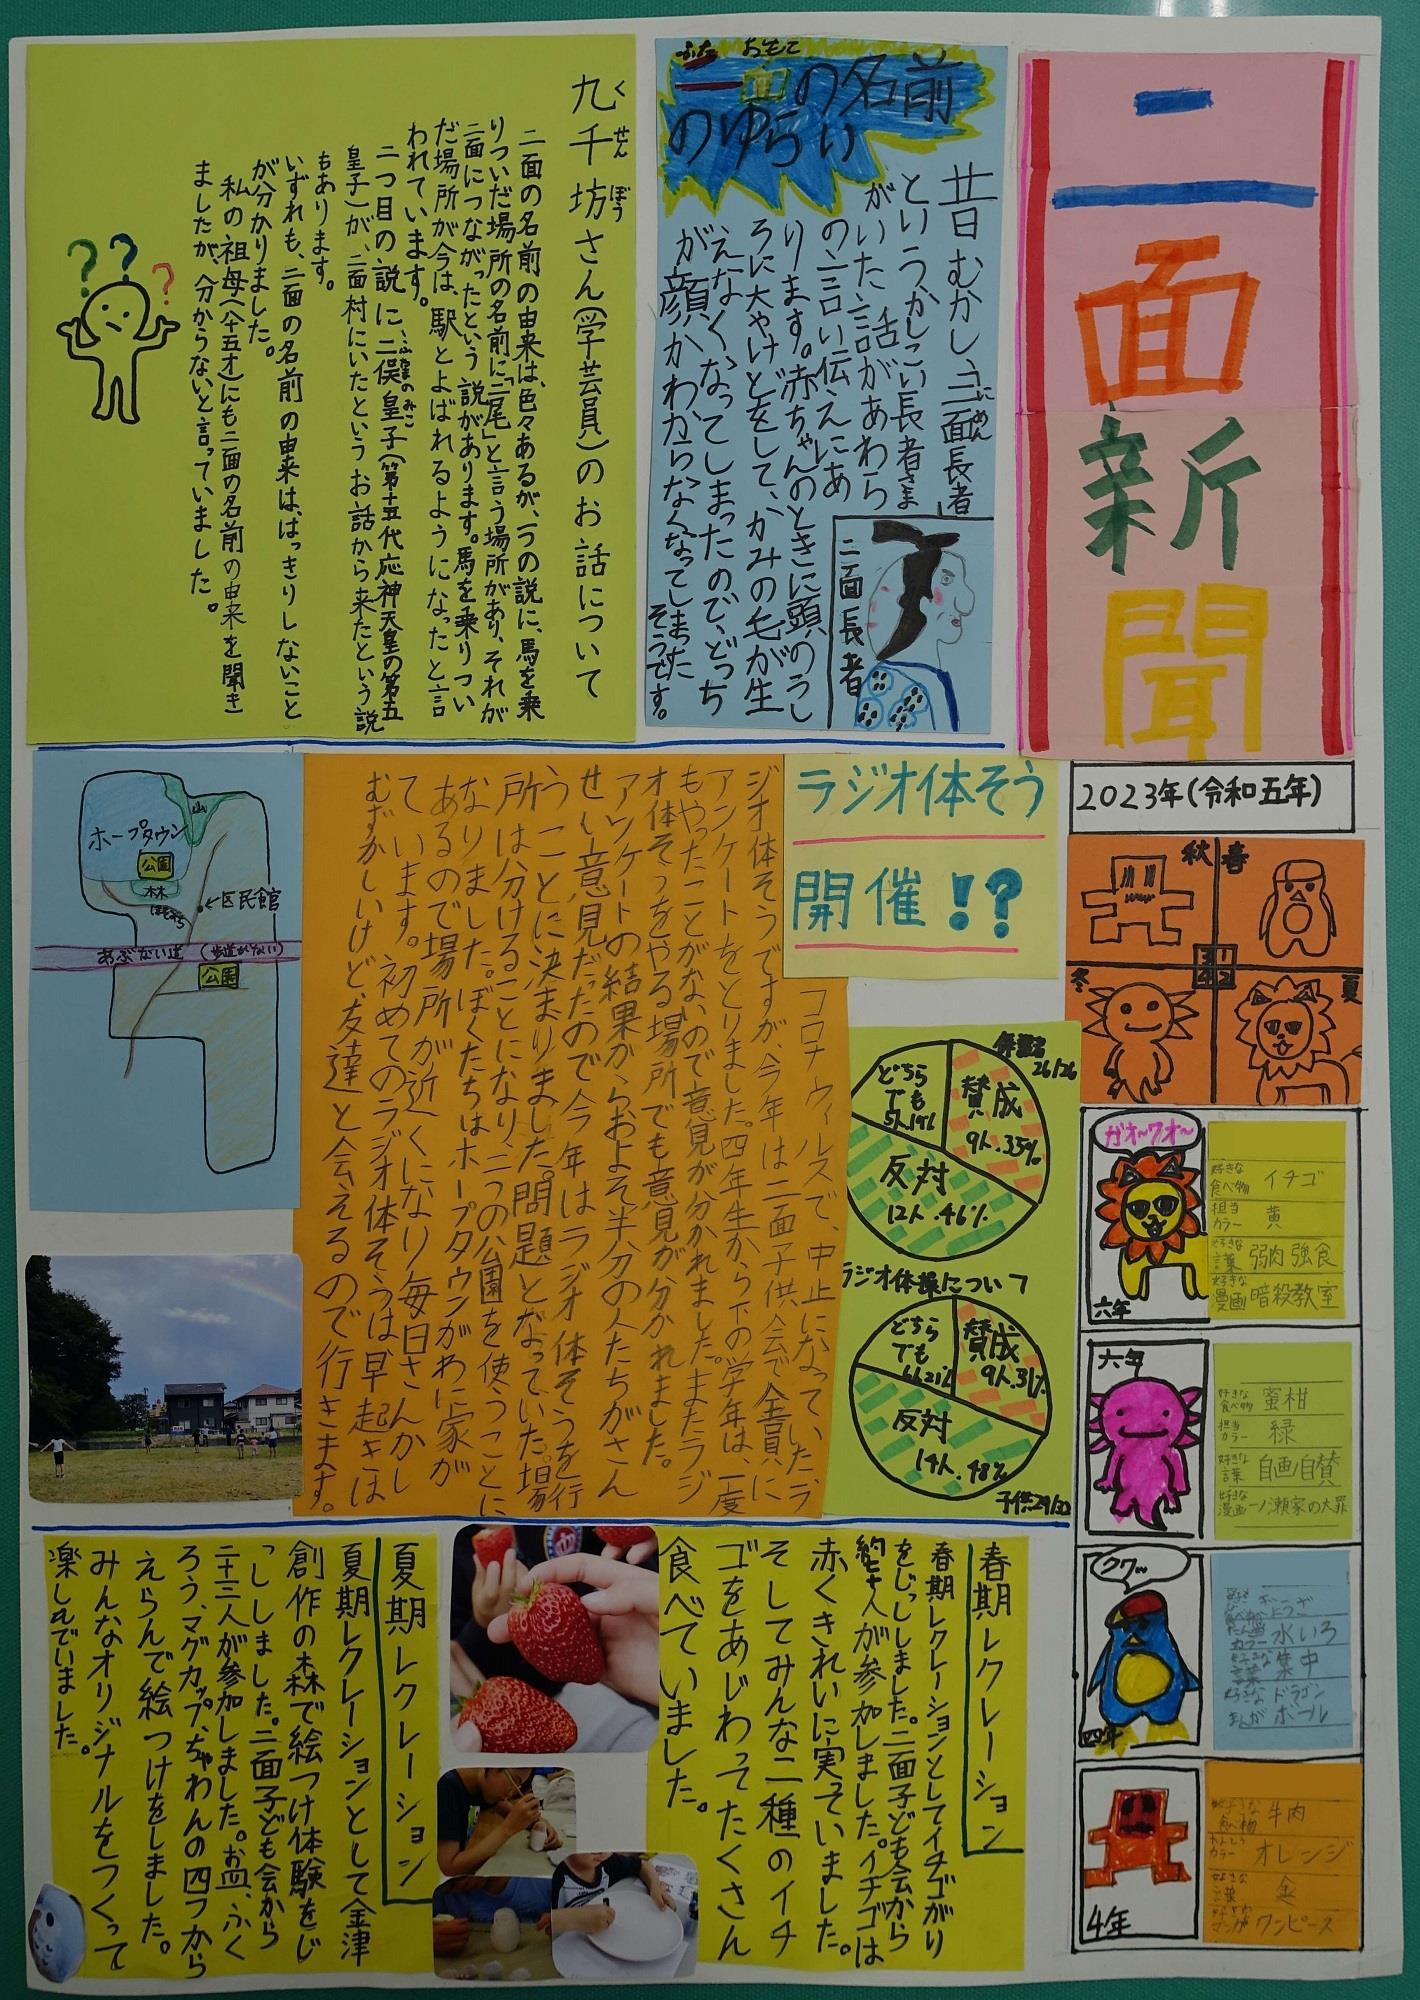 二面新聞
2023年(令和五年)
二面の名前
ふた
おもて
のゆらい
昔むかし、二面長者
にめん
というかしこい長者さま
がいた話があわら
の言い伝えにあ
ります。赤ちゃんのときに頭のうし
ろに大やけどをして、かみの毛が生
えなくなってしまったので、どっち
が顔かわからなくなってしまった
そうです。
二面長者
九千坊さん(学芸員)のお話について
くせんぼう
二面の名前の由来は、色々あるが、一つの説に、馬を乗
りついだ場所の名前に「二尾」と言う場所があり、それが
二面につながったという説があります。馬を乗りつい
だ場所が今は、駅とよばれるようになったと言
われています。
二つ目の説に二俣皇子(第十五代応神天皇の第五
皇子)が、二面村にいたというお話から来たという説
もあります。
いずれも、二面の名前の由来は、はっきりしないこと
が分かりました。
私の祖母(八十五才)にも二面の名前の由来を聞き
ましたが、分からないと言っていました。
???
ラジオ体そう
開催!?
コロナウィルスで、中止になっていたラ
ジオ体そうですが、今年は二面子供会で全員に
アンケートをとりました。四年生から下の学年は、一度
もやったことがないので意見が分かれました。またラジ
オ体そうをやる場所でも意見が分かれました。
アンケートの結果からおよそ半分の人たちがさん
せい意見だったので今年はラジオ体そうを行
うことに決まりました。問題となっていた場
所は分けることになり、二つの公園を使うことに
なりました。ぼくたちはホープタウンがわに家が
あるので場所が近くになり毎日さんかし
ています。初めてのラジオ体そうは早起きは
むずかしいけど、友達と会えるので行きます。
26/26
賛成
9人.35%
反対
12人.46%
どちら
でも
5人19%
ラジオ体操について
賛成
9人.31%
反対
14人.48%
どちら
でも
6人21%
山
ホープタウン
公園
林
ほそみち
←区民館
あぶない道 (歩道がない)
公園
秋
春
冬
夏
3 1
4 2
ガオ～ワオ～
六年
好きな食べ物 イチゴ
担当カラー 黄
好きな言葉 弱肉強食
好きな漫画 暗殺教室
六年
好きな食べ物 蜜柑
担当カラー 緑
好きな言葉 自画自賛
好きな漫画 一ノ瀬家の大罪
クワッ
四年
水いろ
集中
ドラゴン
ボール
4年
牛肉
オレンジ
金
ワンピース
春期レクレーション
春期レクレーションとしてイチゴがり
をじっししました。二面子ども会から
人が参加しました。イチゴは
赤くきれいに実っていました。
そしてみんな二種のイチ
ゴをあじわってたくさん
食べていました。
夏期レクレーション
夏期レクレーションとして金津
創作の森で絵つけ体験をじ
っししました。二面子ども会から
二十三人が参加しました。お皿、ふく
ろう、マグカップ、ちゃわんの四つから
えらんで絵つけをしました。
みんなオリジナルをつくって
楽しんでいました。